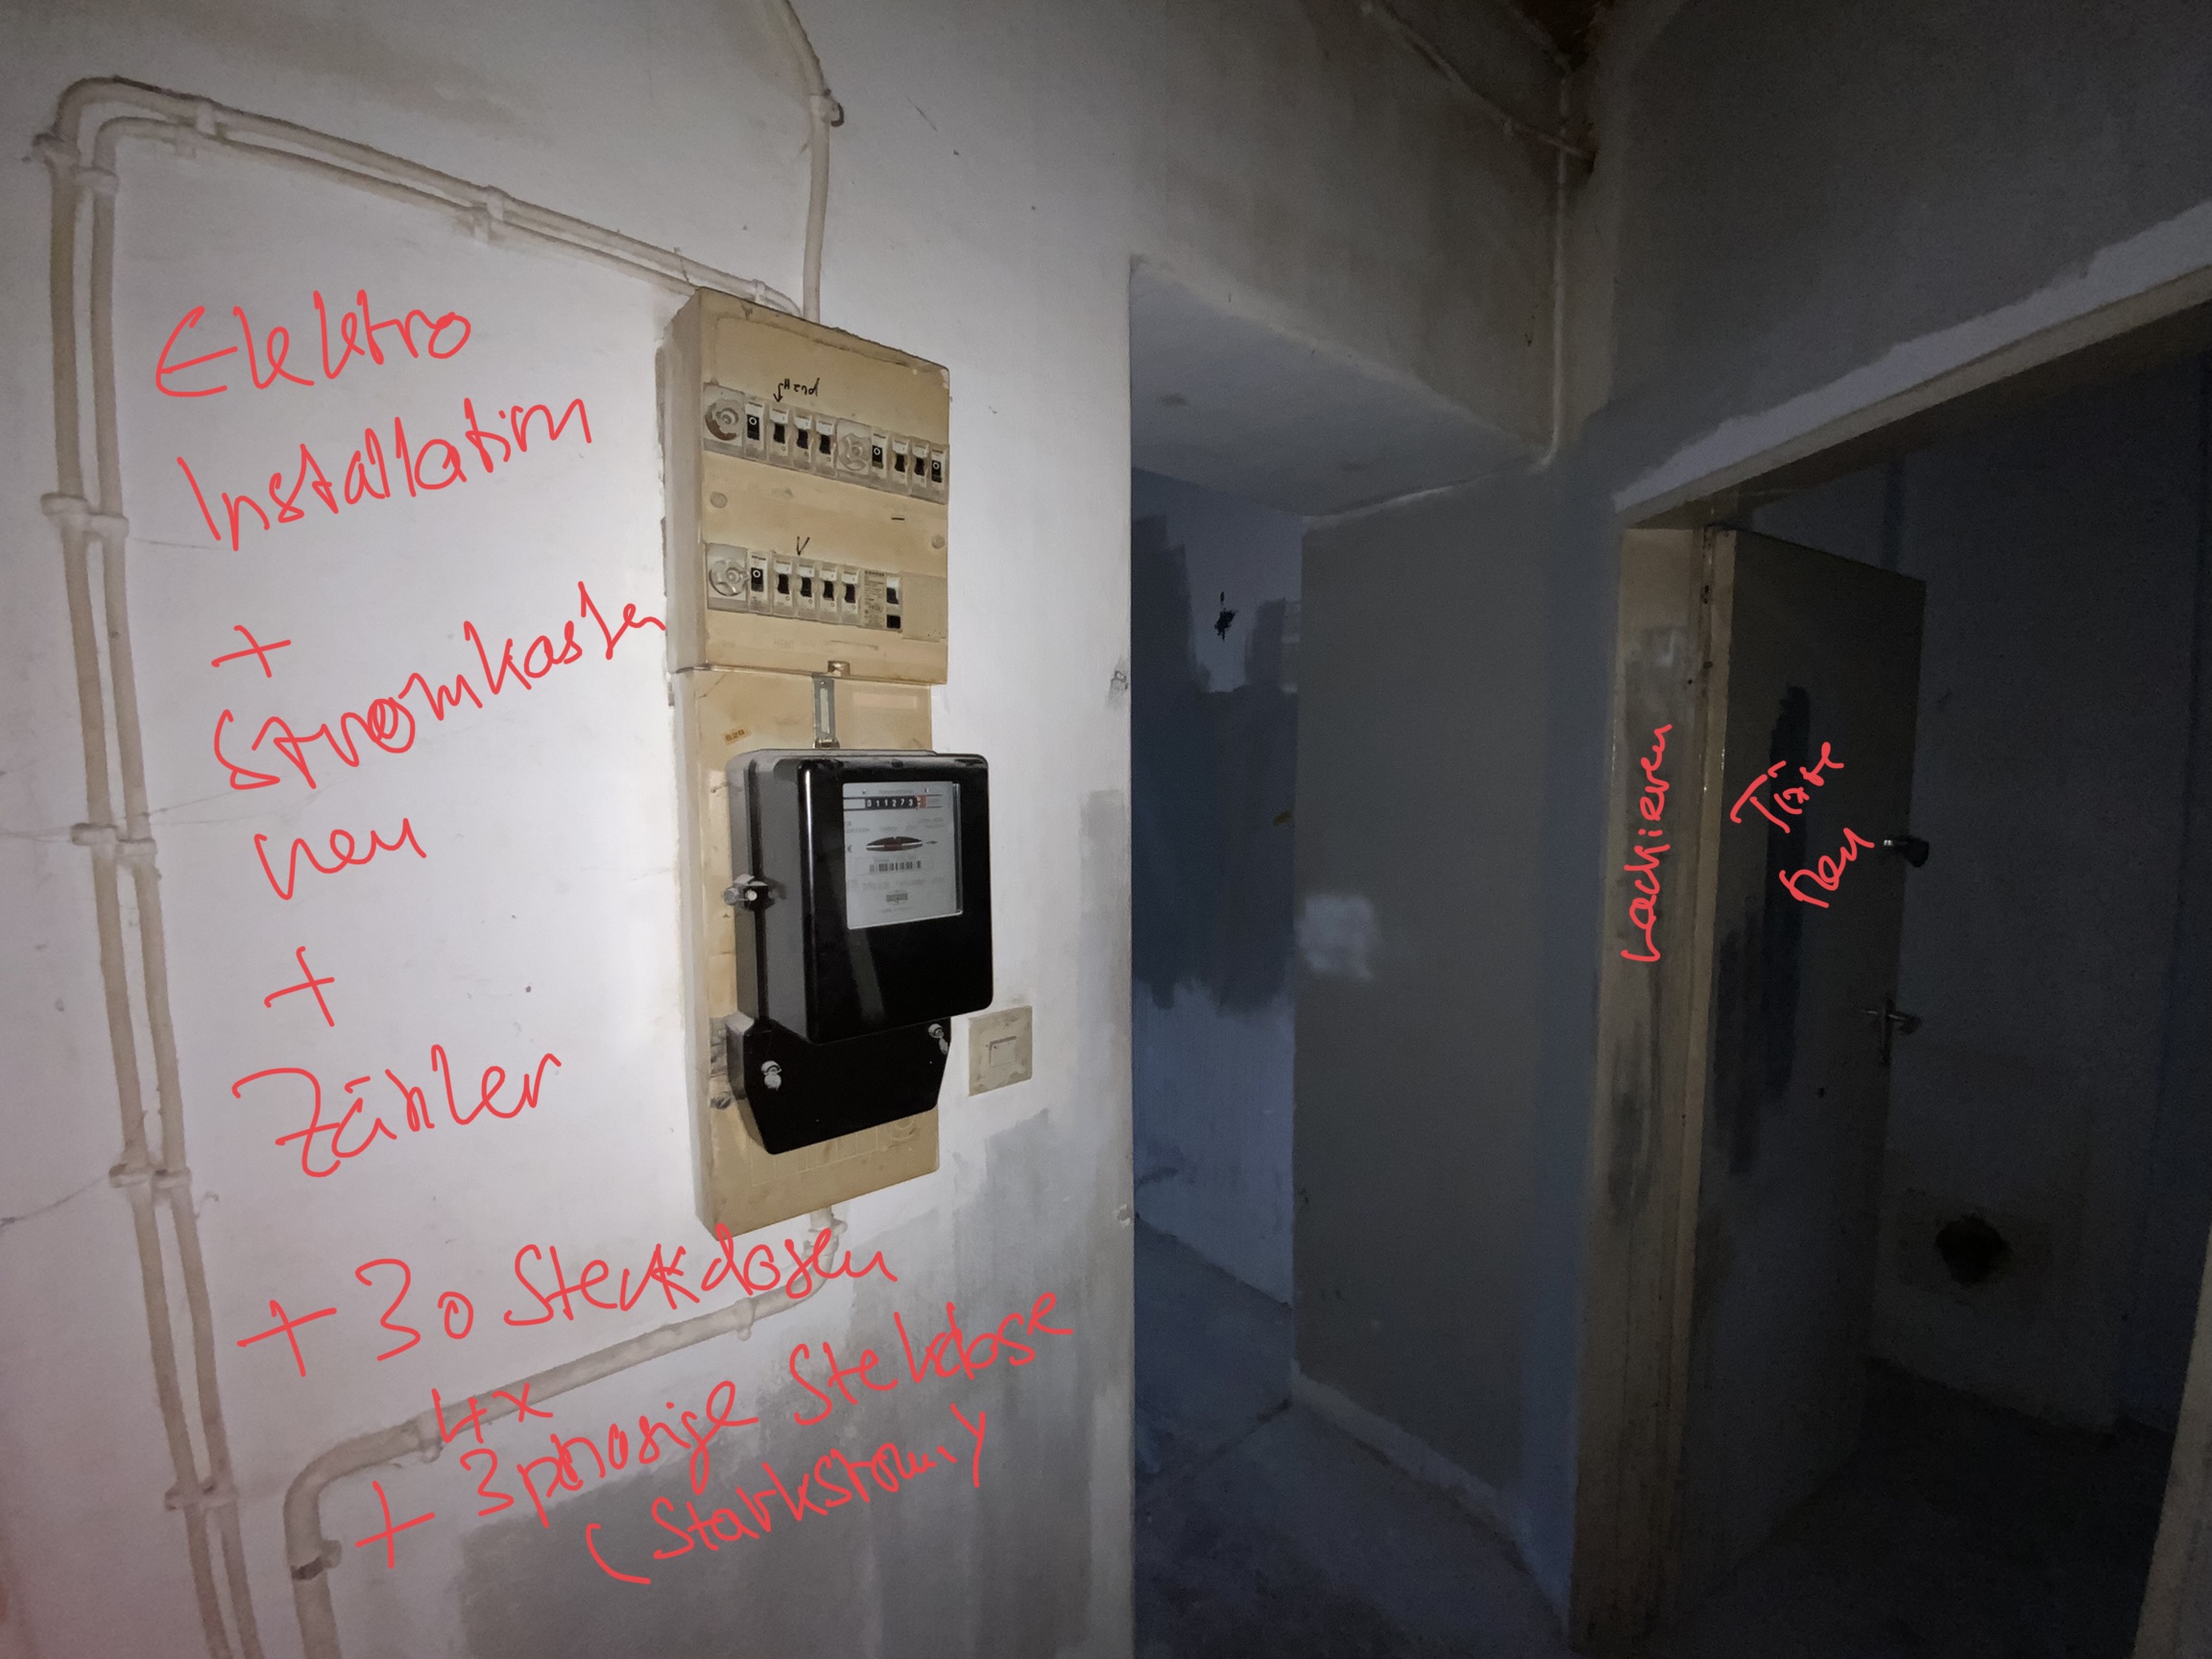 Elektro
Installation
+
Stromkasten
neu
+
Zähler
+ 30 Steckdosen
4x
+ 3phasige Stekdose
(Starkstrom)
Lackieren
Türe
neu
Herd
011273